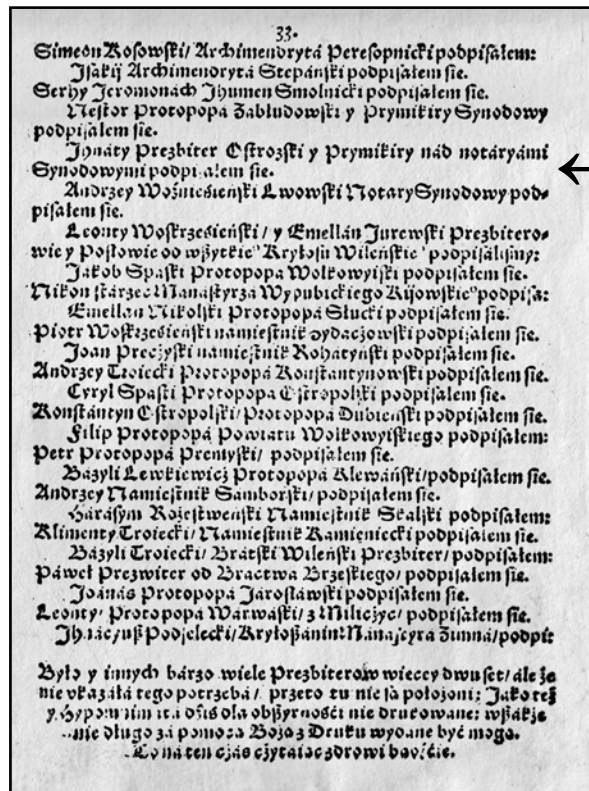 33.
Simeon Kosowski/ Archimendrytá Peresopnicki podpisałem:
Jsákij Archimendrytá Stepáński podpisałem sie.
Serhy Jeromonách Jhumen Smolnicki podpisałem sie.
Nestor Protopopá Zabłudowski y Prymikiry Synodowy
podpisałem sie.
Jhnáty Prezbiter Ostrozski y Prymikiry nád notáryámi
Synodowymi podpisałem sie.
Andrzey Woźniesieński Lwowski Notary Synodowy pod-
pisałem sie.
Leonty Woskrzesieński/ y Emellán Jurewski Prezbitero-
wie y Posłowie od wszytkie° Kryłosu Wileńskie° podpisálismy:
Jakob Spáski Protopopá Wolkowyiski podpisałem sie.
Nikon stárzec Manástyrzá Wypubickiego Kijowskie° podpisa:
Emellan Nikolski Protopopá Słucki podpisałem sie.
Piotr Woskrzesieński namiestnik Zydaczowski podpisałem sie.
Joan Preczyski namiestnik Rohátyński podpisałem sie.
Andrzey Troiecki Protopopá Konstántynowski podpisałem sie.
Cyryl Spáski Protopopá Ostropolski podpisałem sie.
Konstántyn Ostropolski/ Protopopá Dubieński podpisałem sie.
Filip Protopopá Powiátu Wolkowyiskiego podpisałem:
Petr Protopopá Premyski/ podpisałem sie.
Bázyli Lewkiewicz Protopopá Klewáński/ podpisałem sie.
Andrzey Namiestnik Sámborski/ podpisałem sie.
Hárásym Rożestweński Namiestnik Skalski podpisałem:
Klimenty Troiecki/ Namiestnik Kámieniecki podpisałem sie.
Bázyli Troiecki/ Brátski Wileński Prezbiter/ podpisałem:
Páweł Prezwiter od Bráctwá Brzeskiego/ podpisałem sie.
Joánás Protopopá Járosłáwski podpisałem sie.
Leonty/ Protopopá Wárwáski/ z Miliczyc/ podpisałem sie.
Podjelecki/ Kryłoszánin
Było y innych bárzo wiele Prezbiterow wiecey dwuset/ ále że
nie vkazáłá tego potrzebá/ przeto tu nie są położoni: Jáko też
y dziś dla obszyrności nie drukowáne: wszákże
nie długo zá pomocą Bożą z Druku wydáne być mogą.
Co ná ten czás czytáiąc zdrowi bądźcie.